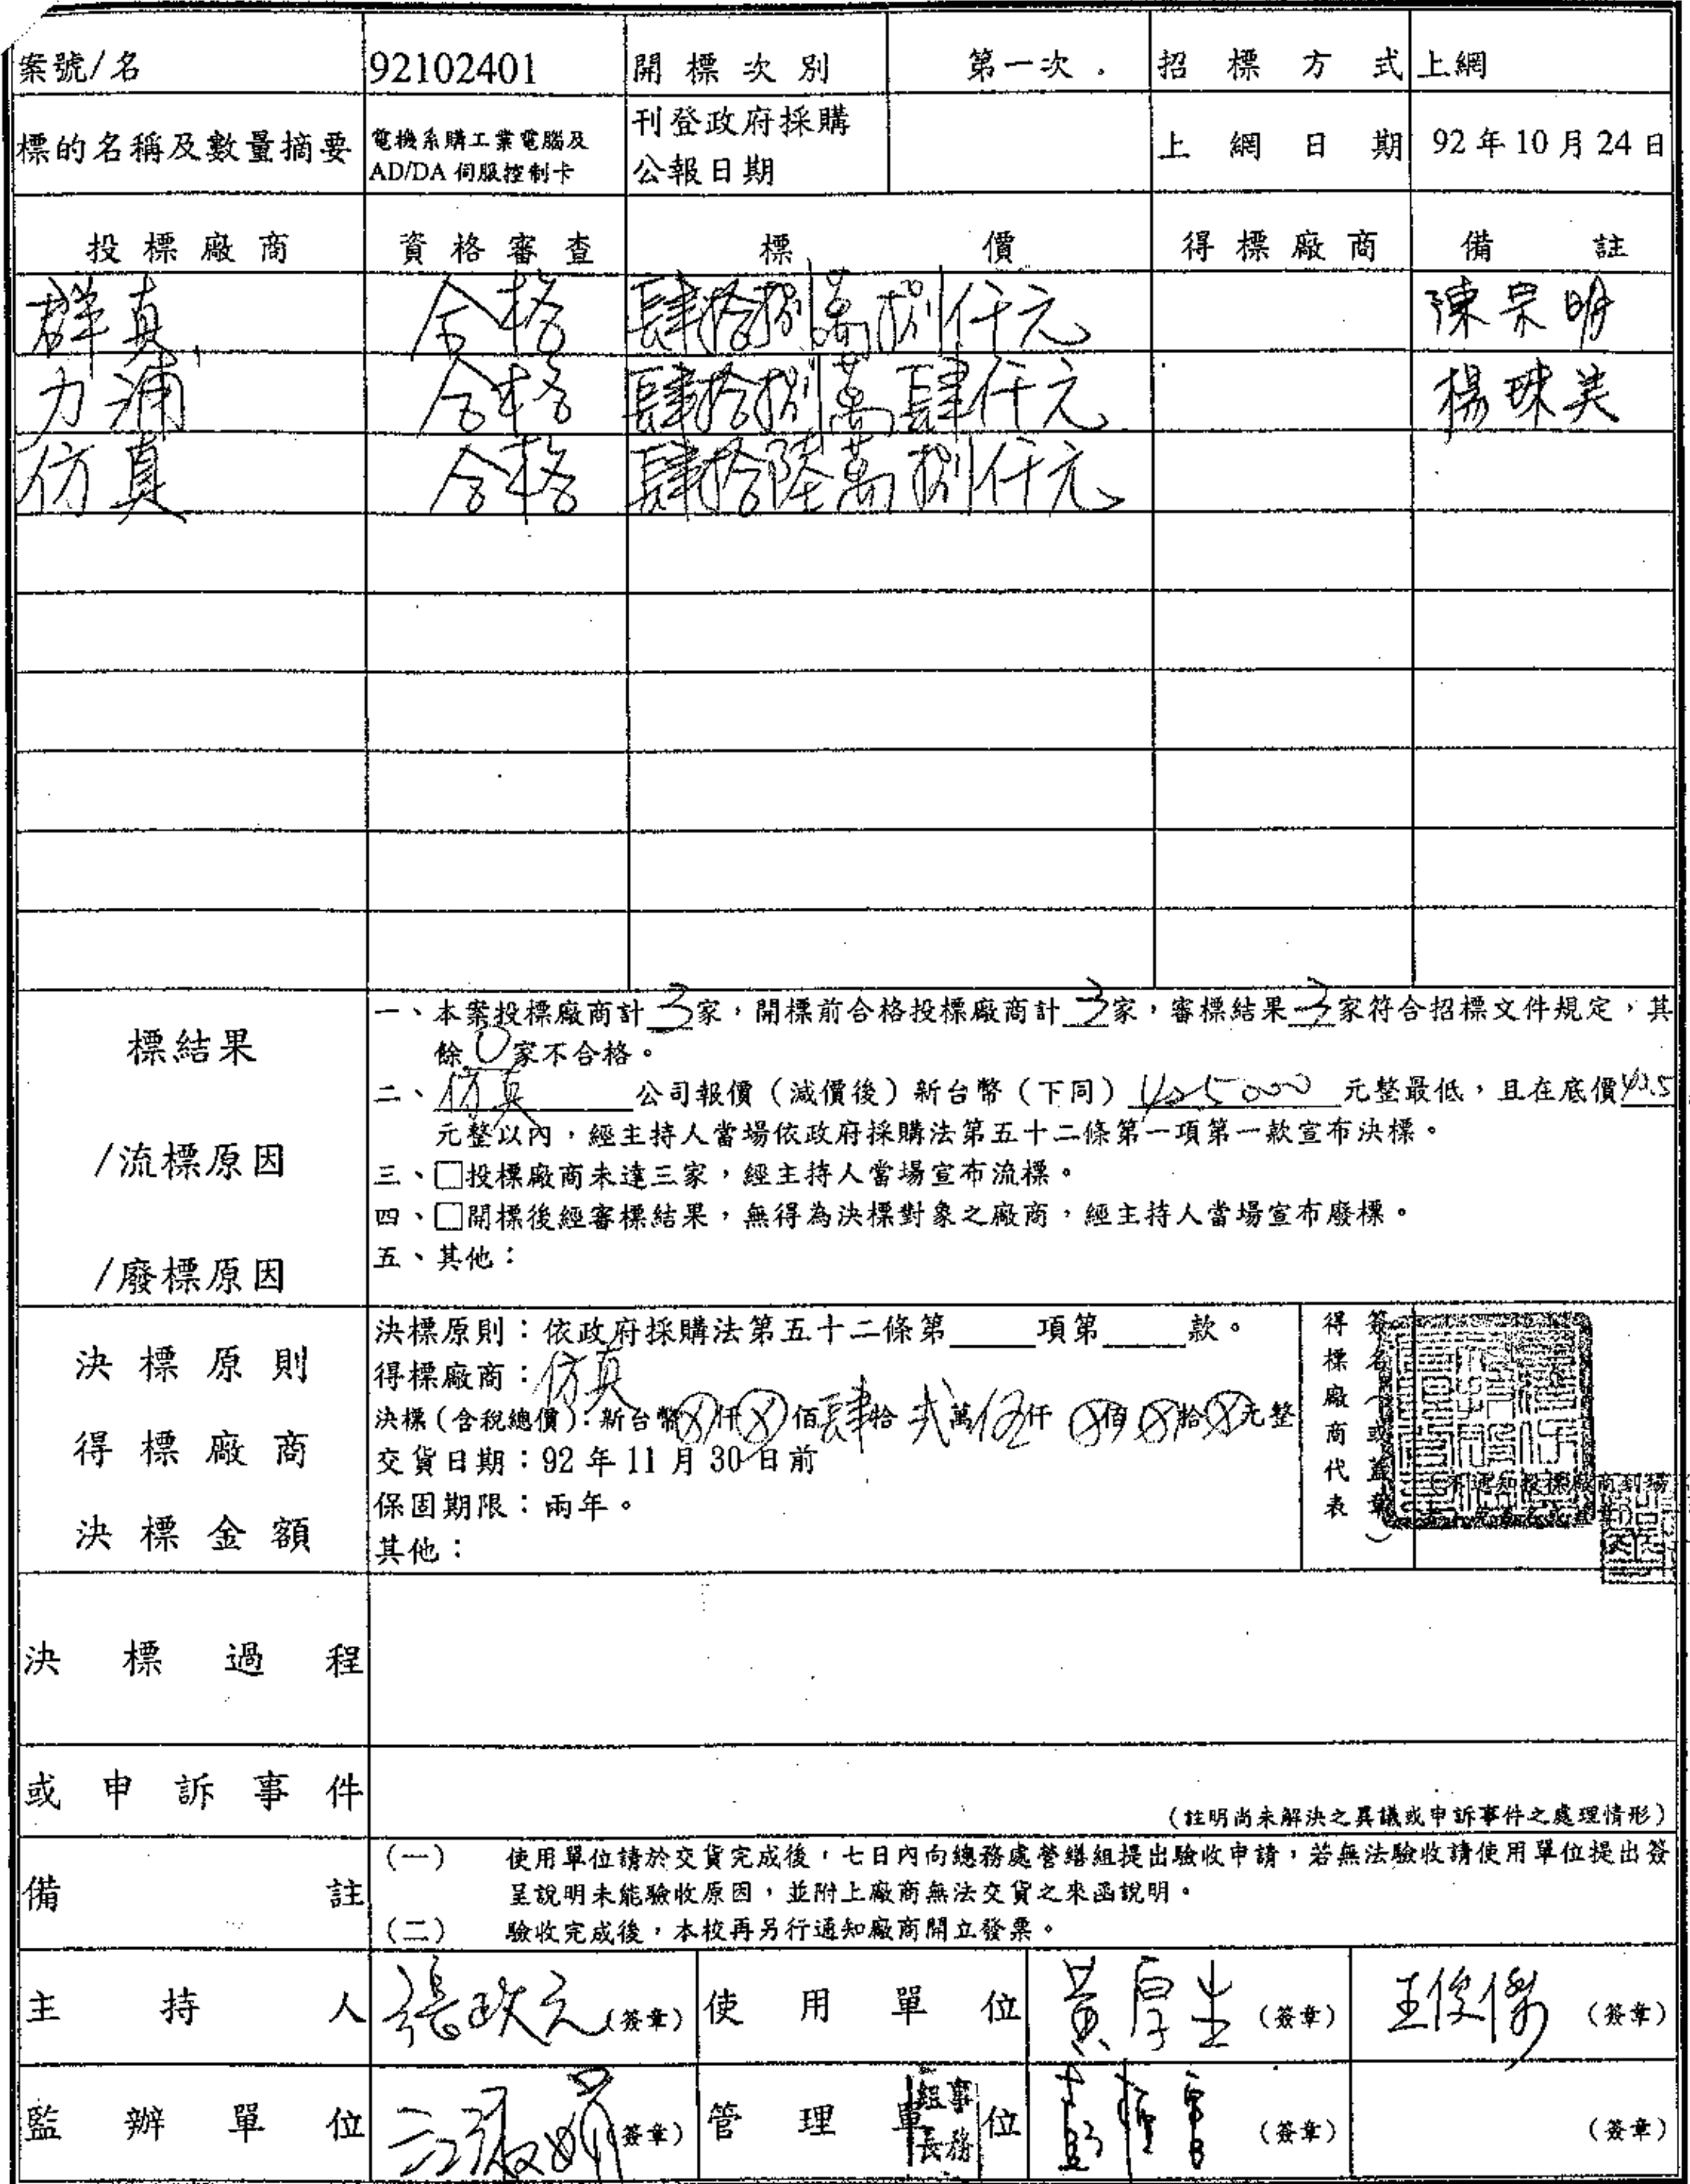 案號/名 92102401 開標次別 第一次. 招標方式 上網
標的名稱及數量摘要 電機系購工業電腦及 AD/DA 伺服控制卡 刊登政府採購公報日期 上網日期 92年10月24日
投標廠商 資格審查 標價 得標廠商 備註
群真 合格 肆拾捌萬捌仟元 陳宗明
力浦 合格 肆拾捌萬肆仟元 楊珠美
仿真 合格 肆拾陸萬捌仟元
標結果
/流標原因
/廢標原因
一、本案投標廠商計3家,開標前合格投標廠商計3家,審標結果3家符合招標文件規定,其
餘0家不合格。
二、仿真公司報價(減價後)新台幣(下同)425000元整最低,且在底價42.5
元整以內,經主持人當場依政府採購法第五十二條第一項第一款宣布決標。
三、□投標廠商未達三家,經主持人當場宣布流標。
四、□開標後經審標結果,無得為決標對象之廠商,經主持人當場宣布廢標。
五、其他:
決標原則
得標廠商
決標金額
決標原則:依政府採購法第五十二條第____項第____款。
得標廠商:仿真
決標(含稅總價):新台幣⊗仟⊗佰肆拾弍萬伍仟⊗佰⊗拾⊗元整
交貨日期:92年11月30日前
保固期限:兩年。
其他:
得標廠商代表
簽名(或蓋章)
不通知投標廠商到場
決標過程
或申訴事件
(註明尚未解決之異議或申訴事件之處理情形)
備註
(一) 使用單位請於交貨完成後,七日內向總務處營繕組提出驗收申請,若無法驗收請使用單位提出簽
呈說明未能驗收原因,並附上廠商無法交貨之來函說明。
(二) 驗收完成後,本校再另行通知廠商開立發票。
主持人 張政元(簽章) 使用單位 黃厚生(簽章) 王俊傑(簽章)
監辦單位 (簽章) 管理單位 事務組長 (簽章) (簽章)